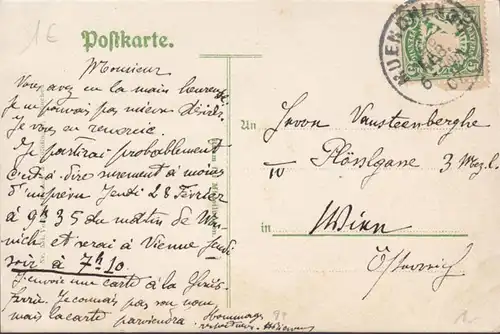 1 €
Postkarte.
MUENCHEN
Monsieur
Vous avez eu la main heureuse
je ne pouvais pas mieux désirer
Je vous en remercie.
Je partirai probablement
c'est-à-dire sûrement à moins
d'imprévu Jeudi 28 Février
à 9h 35 du matin de Mu-
nich et serai à Vienne Jeudi
soir à 7h 10.
J'envoie une carte à la
Je connais pas son nom,
mais la carte parviendra
Hommages
respectueux
An
Herrn Vansteenberghe
10 Plösslgasse 3
in Wien
Österreich